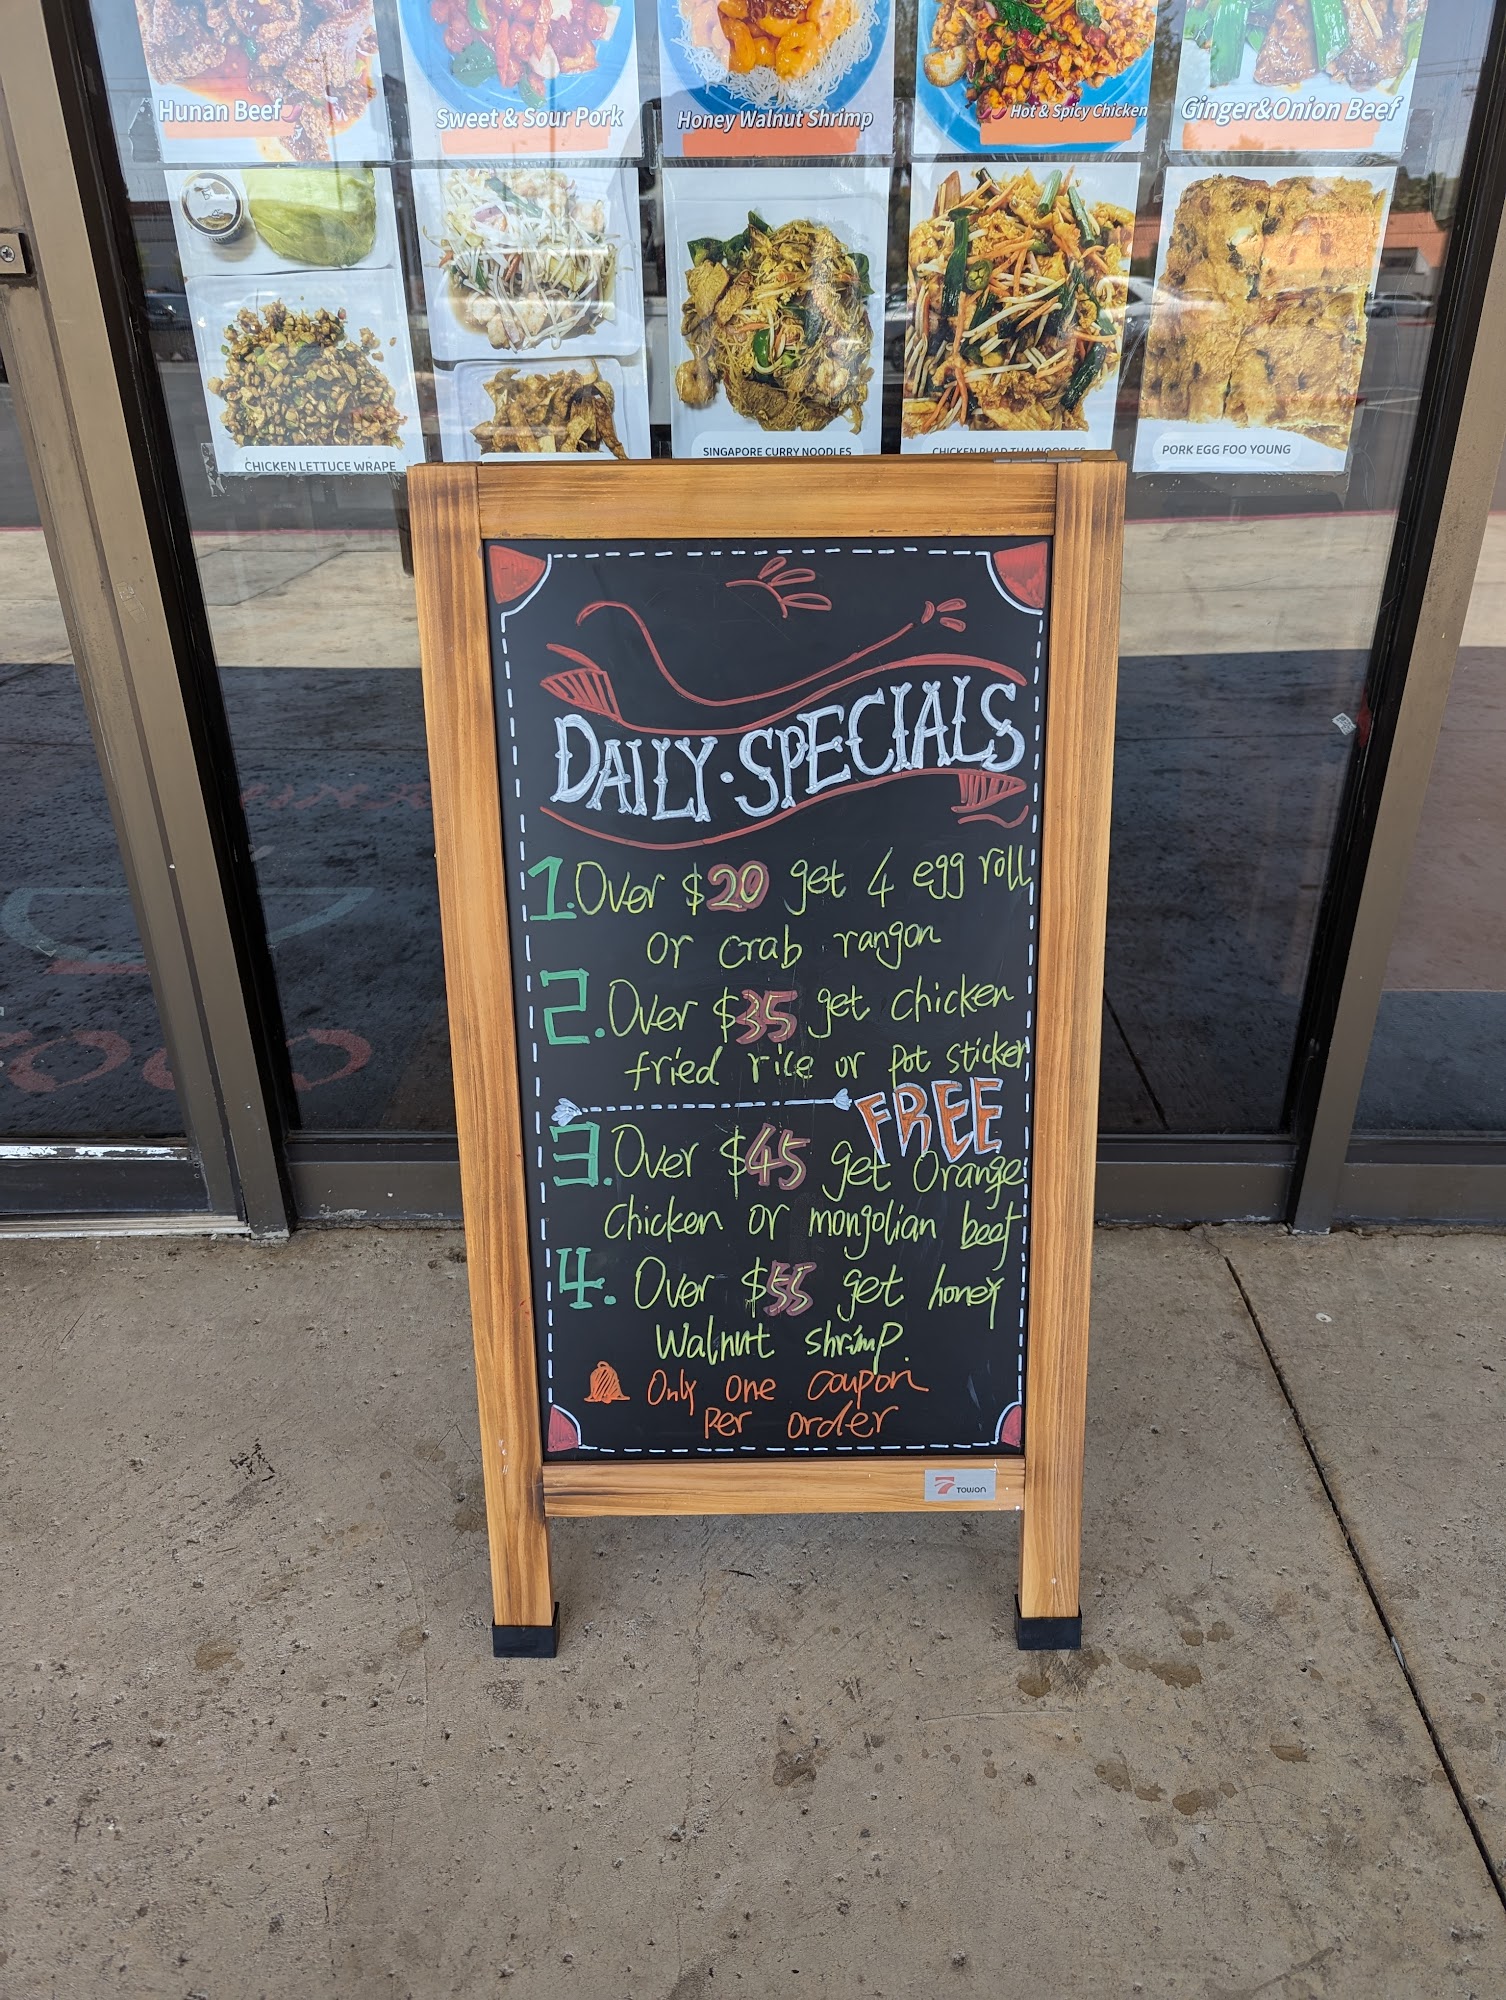 Hunan Beef
Sweet & Sour Pork
Honey Walnut Shrimp
Hot & Spicy Chicken
Ginger&Onion Beef
CHICKEN LETTUCE WRAPE
SINGAPORE CURRY NOODLES
CHICKEN PHAD THAI NOODLES
PORK EGG FOO YOUNG
DAILY·SPECIALS
1.Over $20 get 4 egg roll
or crab rangon
2.Over $35 get chicken
fried rice or pot sticker
FREE
3.Over $45 get Orange
Chicken or mongolian beef
4. Over $55 get honey
Walnut shrimp.
Only one coupon
Per order
TOWON